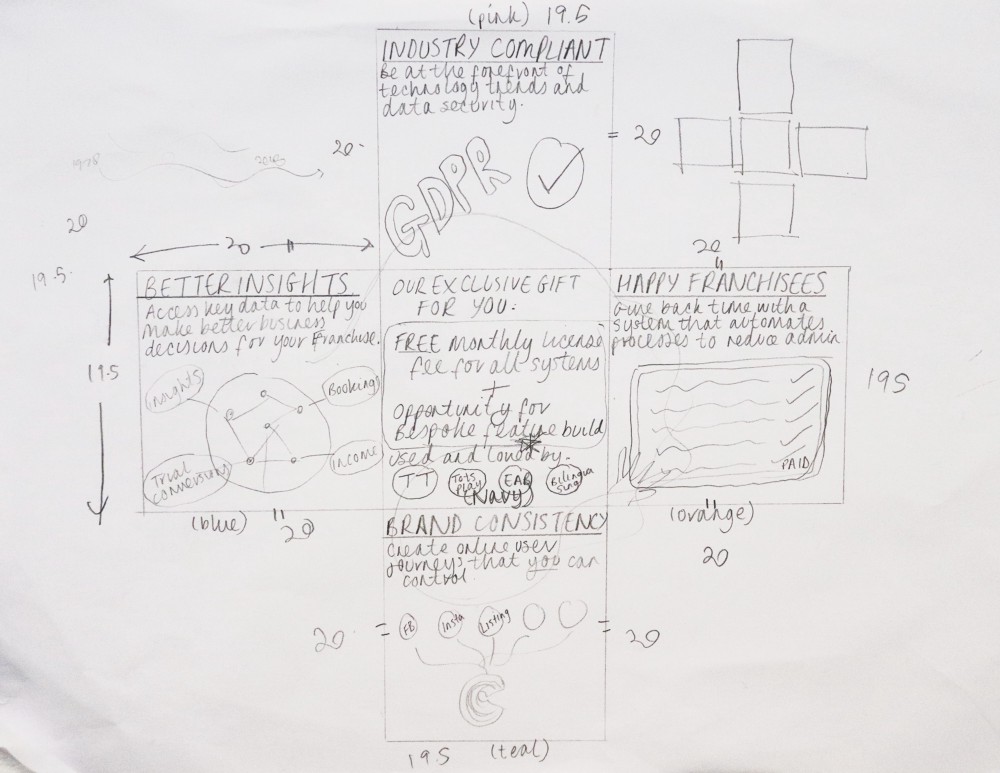 (pink) 19.5
INDUSTRY COMPLIANT
Be at the forefront of
technology trends and
data security.
20
= 20
GDPR
20
20
19.5
19.5
BETTER INSIGHTS
Access key data to help you
make better business
decisions for your Franchise.
Insights
Bookings
Trial
conversions
Income
(blue)
20
OUR EXCLUSIVE GIFT
FOR YOU:
FREE monthly license
fee for all systems
+
Opportunity for
Bespoke feature build
used and loved by.
TT
Tots
play
EAB
Bilingua
sing
(Navy)
20
HAPPY FRANCHISEES
Give back time with a
system that automates
processes to reduce admin
PAID
19.5
(orange)
20
BRAND CONSISTENCY
Create online user
journeys that you can
control.
20 =
= 20
FB
Insta
Listing
C
19.5 (teal)